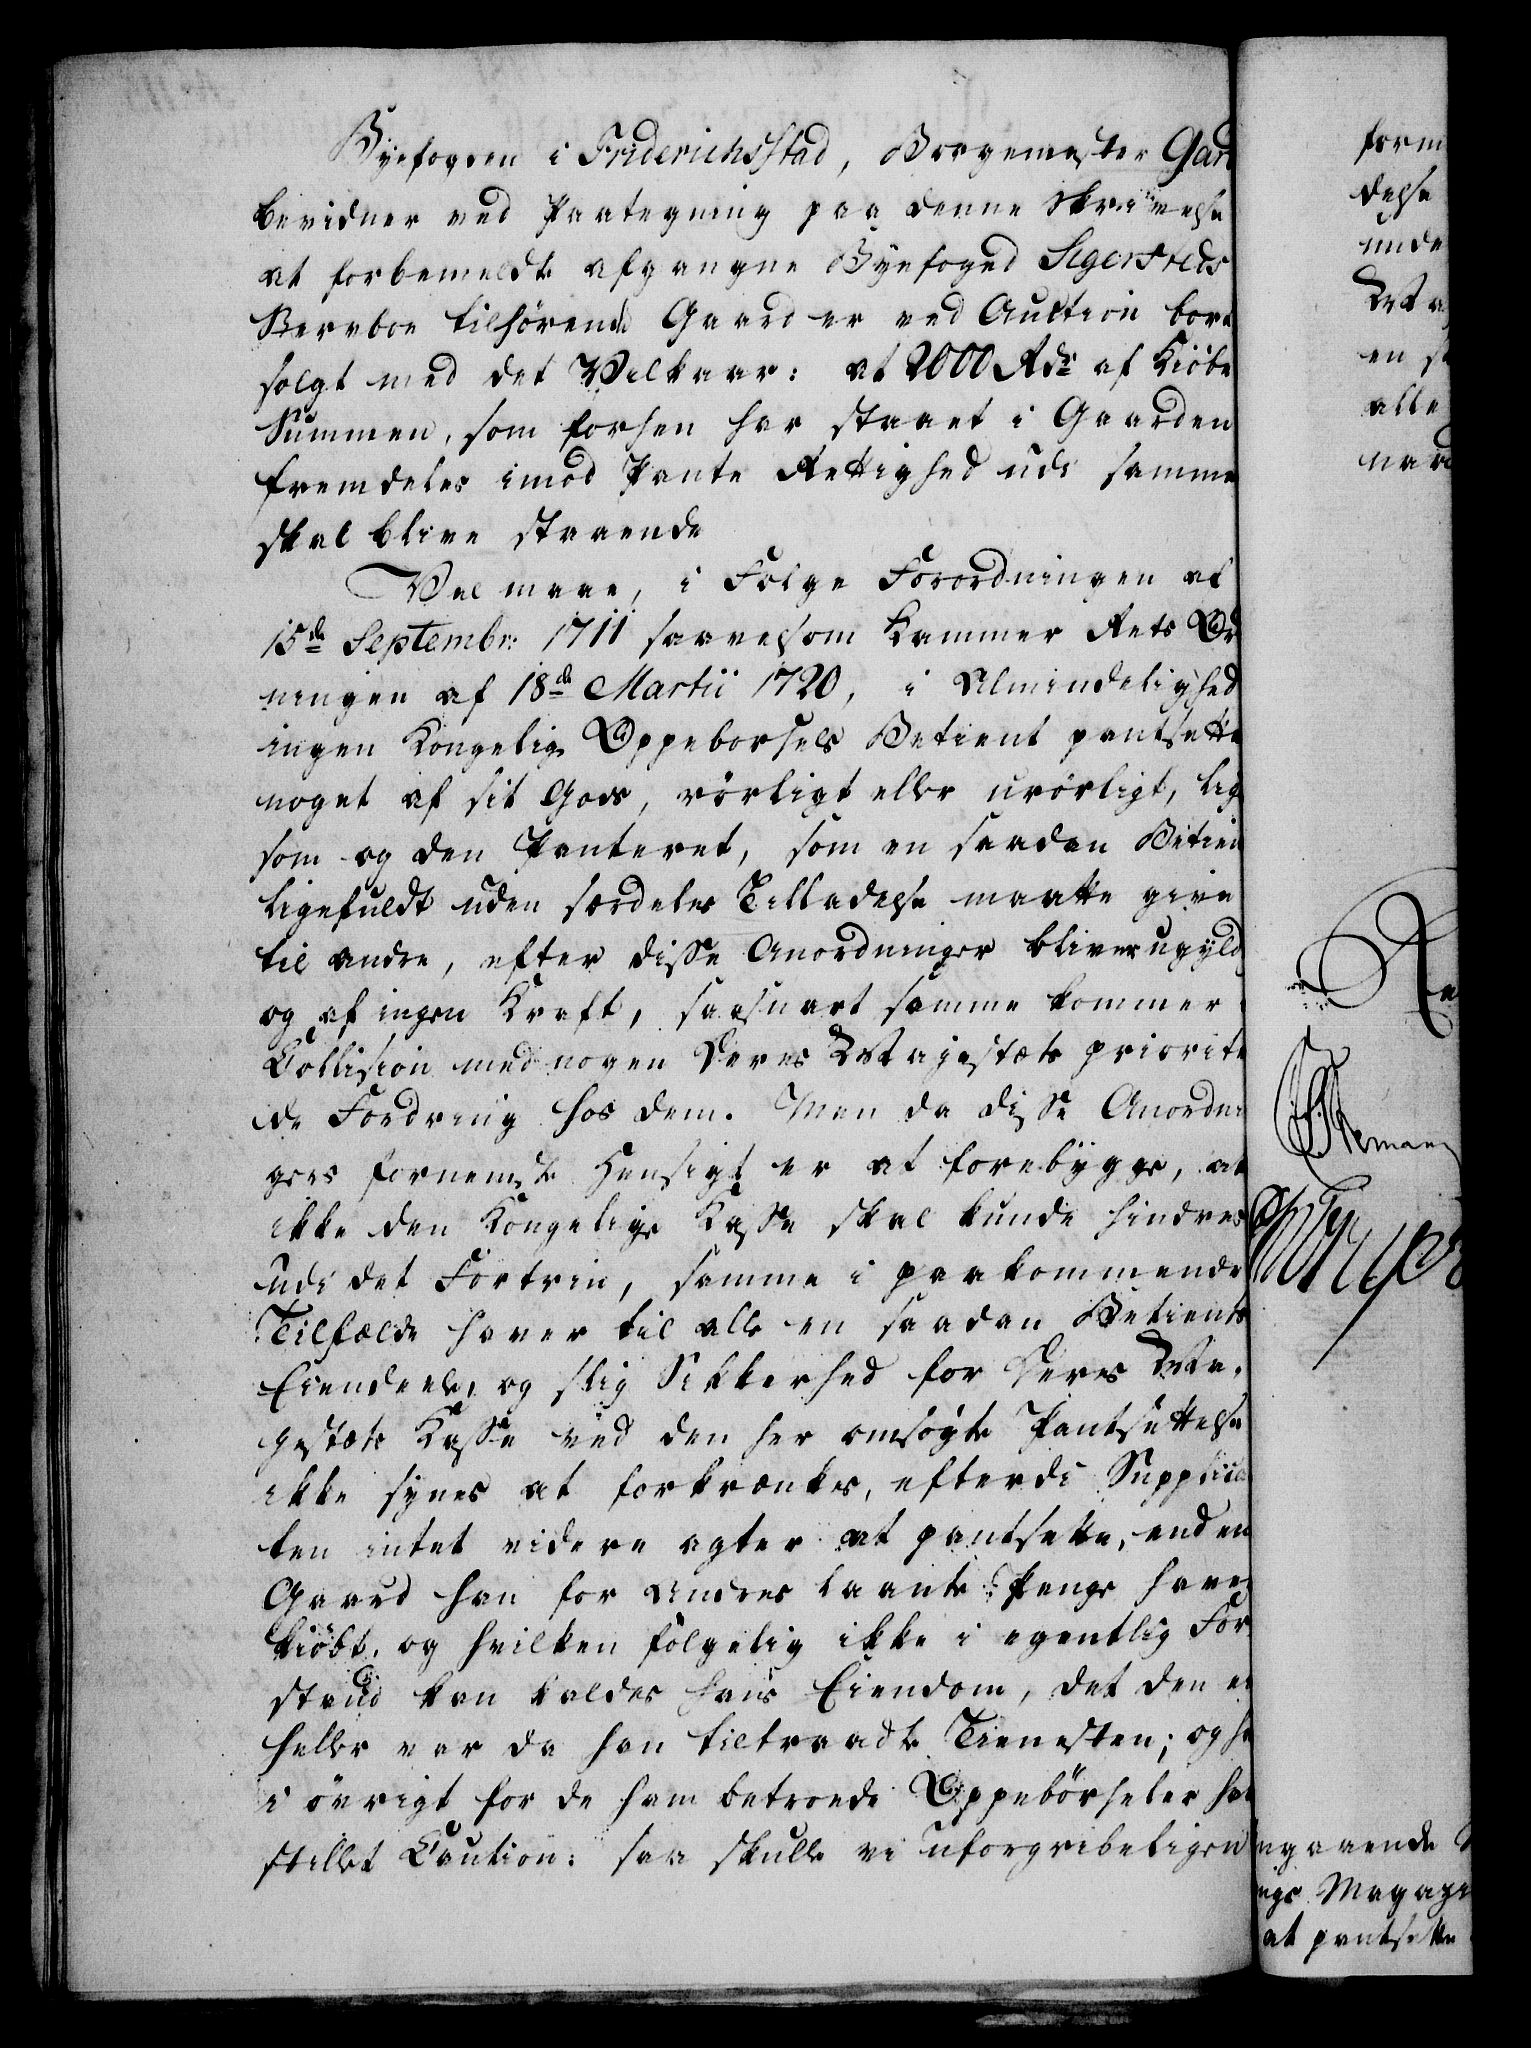 Byefogden i Friderichsstad, Borgemester Gar
bevidner ved Paategning paa denne Skrivelse
at forbemeldte afgangne Byefoged Segersteds
Sterboe tilhørende Gaard er ved Auction bort
solgt med det Vilkaar: at 2000 Rdr af Kiøbe
Summen, som forhen har staaet i Gaarden
fremdeles imod Pante Rettighed udi samme
skal blive staaende
Vel maae, i Følge Forordningen af
15de Septembr: 1711 saavelsom Kammer Rets Ord
ningen af 18de Martii 1720, i Almindelighed
ingen Kongelig Oppebørsels Betient pantsette
noget af sit Gods, rørligt eller urørligt, lige
som og den Panteret, som en saadan Betien
ligefuldt uden særdeles Tilladelse maatte give
til andre, efter disse Anordninger bliver ugyldig
og af ingen Kraft, saasnart samme kommer i
Collision med nogen Deres Majestæts priorite
de Fordring hos dem. Men da disse Anordnin
gers fornemste Hensigt er at forebygge, at
ikke den Kongelige Kasse skal kunde hindres
udi det Fortrin, samme i paakommende
Tilfælde haver til alle en saadan Betients
Eiendeele, og slig Sikkerhed for Deres Ma-
jestæts Kasse ved den her omsøgte Pantsettelse
ikke synes at forkrænkes, efterdi Supplican
ten intet videre agter at pantsette, end en
Gaard han for andres laante Penge haver
kiøbt, og hvilken følgelig ikke i egentlig For-
stand kan kaldes hans Eiendom, det den ei
heller var da han tiltraadte Tienesten; og ha
i øvrigt for de ham betroede Oppebørseler har
stillet Caution: saa skulle vi uforgribeligen
form
delse
unde
Maj
en s
alle
nar
Re
ngaaende
ngs Magazi
at pantsette